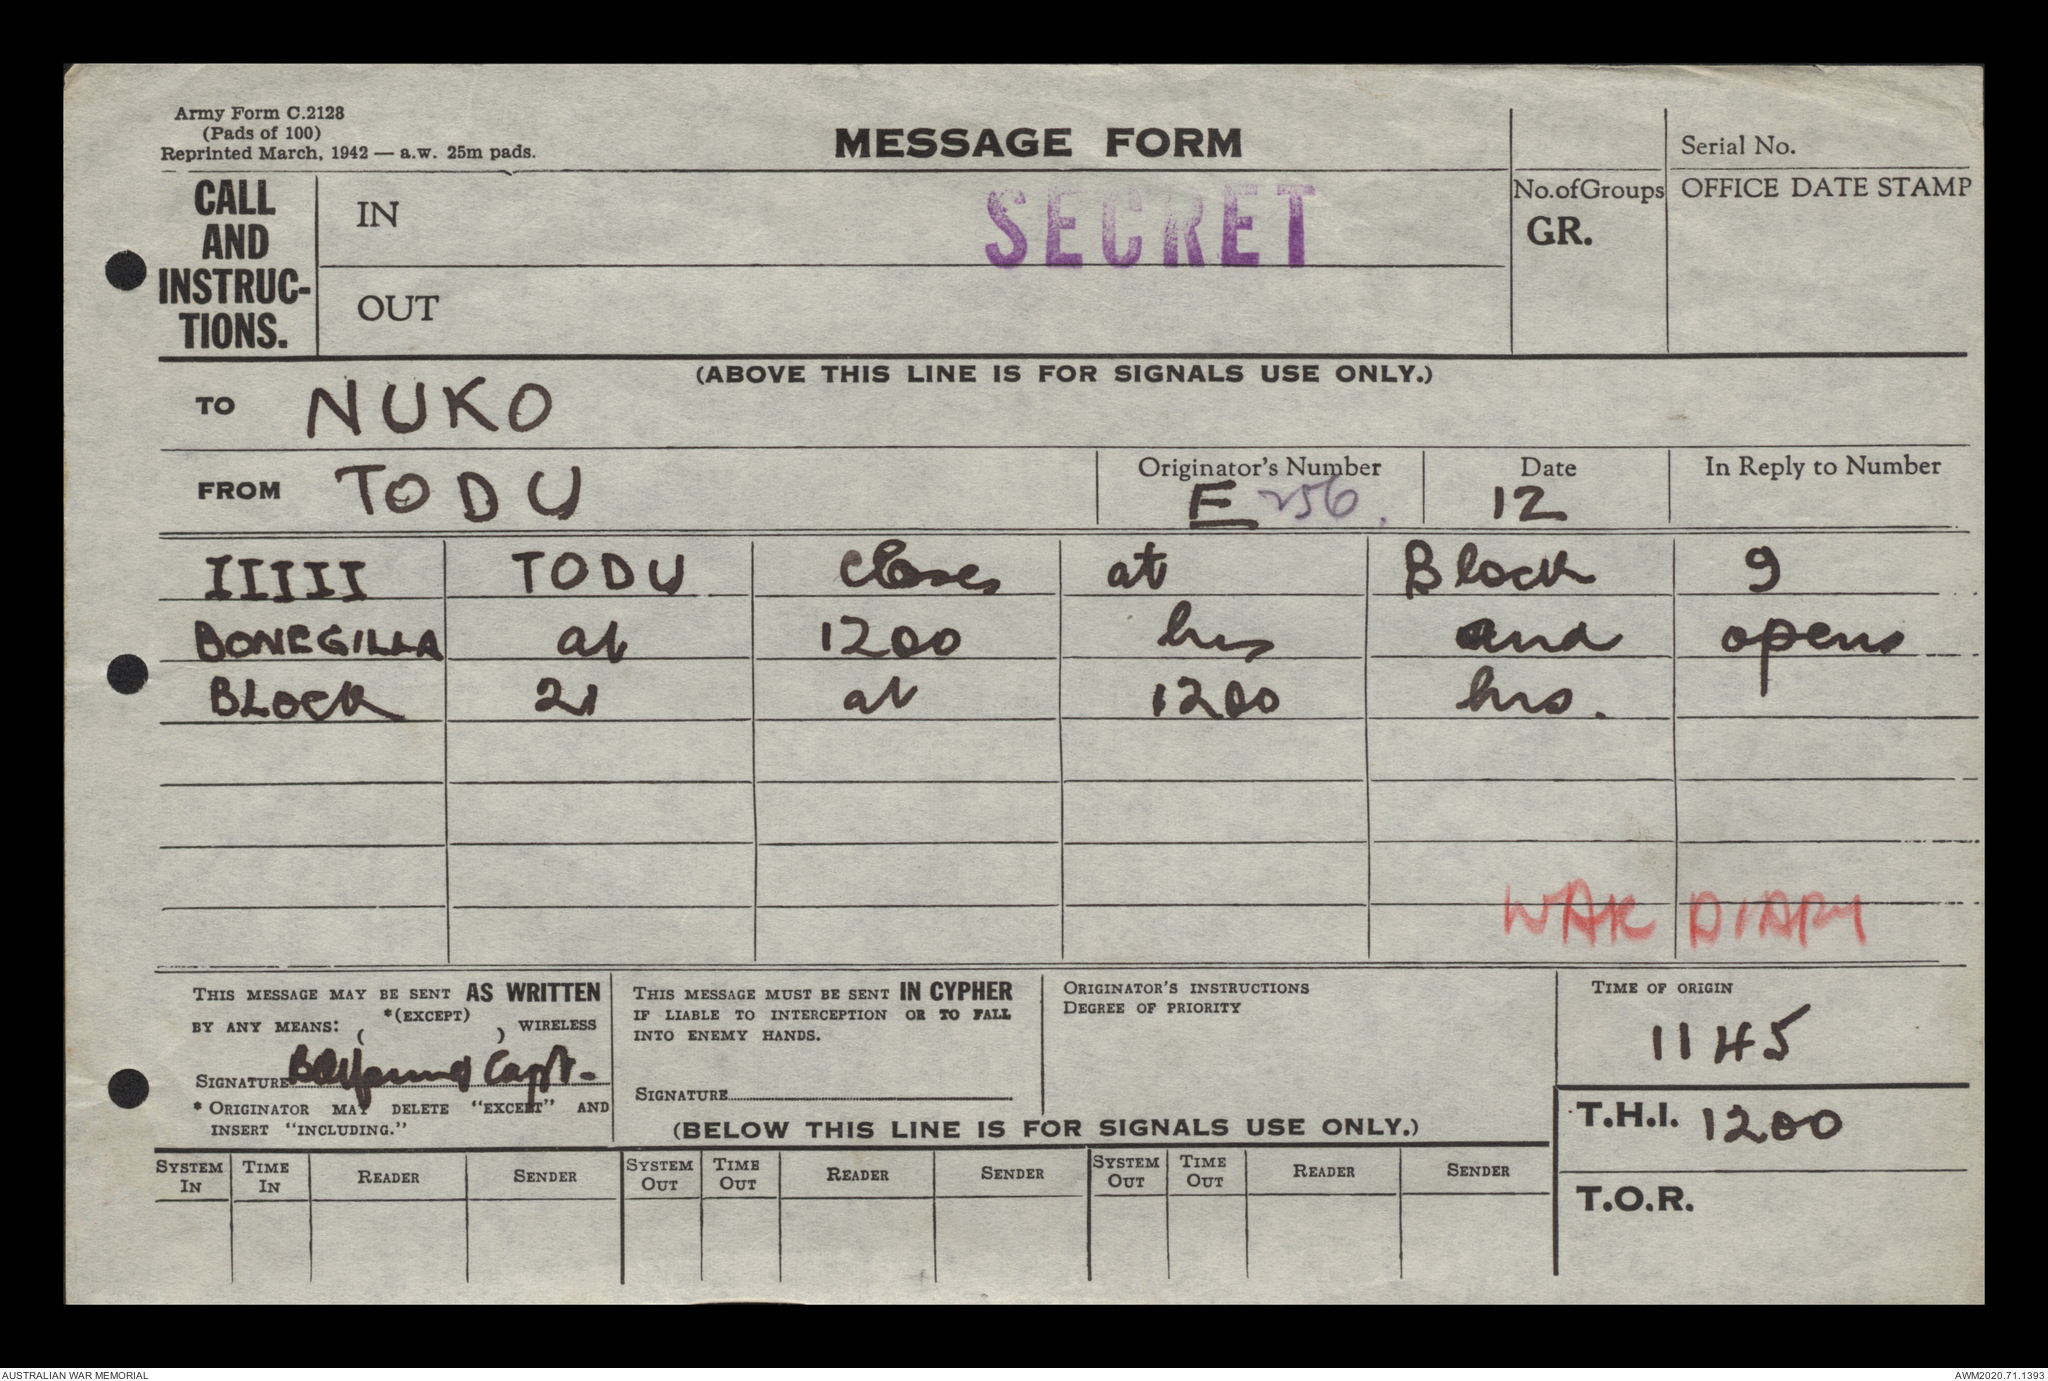 Army Form C.2128
(Pads of 100)
Reprinted March, 1942 — a.w. 25m pads.
MESSAGE FORM
Serial No.
CALL AND INSTRUC- TIONS.
IN
SECRET
No.ofGroups
GR.
OFFICE DATE STAMP
OUT
(ABOVE THIS LINE IS FOR SIGNALS USE ONLY.)
TO NUKO
FROM TODU
Originator's Number
E 256.
Date
12
In Reply to Number
IIIII TODU closes at Block 9
BONEGILLA at 1200 hrs and opens
BLock 21 at 1200 hrs.
WAR DIARY
THIS MESSAGE MAY BE SENT AS WRITTEN
BY ANY MEANS: *(EXCEPT) ( ) WIRELESS
SIGNATURE Capt.
* ORIGINATOR MAY DELETE "EXCEPT" AND
INSERT "INCLUDING."
THIS MESSAGE MUST BE SENT IN CYPHER
IF LIABLE TO INTERCEPTION OR TO FALL
INTO ENEMY HANDS.
SIGNATURE
ORIGINATOR'S INSTRUCTIONS
DEGREE OF PRIORITY
TIME OF ORIGIN
1145
T.H.I. 1200
T.O.R.
(BELOW THIS LINE IS FOR SIGNALS USE ONLY.)
SYSTEM IN TIME IN READER SENDER SYSTEM OUT TIME OUT READER SENDER SYSTEM OUT TIME OUT READER SENDER
AUSTRALIAN WAR MEMORIAL
AWM2020.71.1393